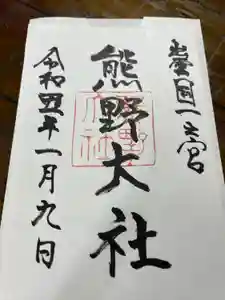 出雲國一之宮
熊野大社
令和五年一月九日